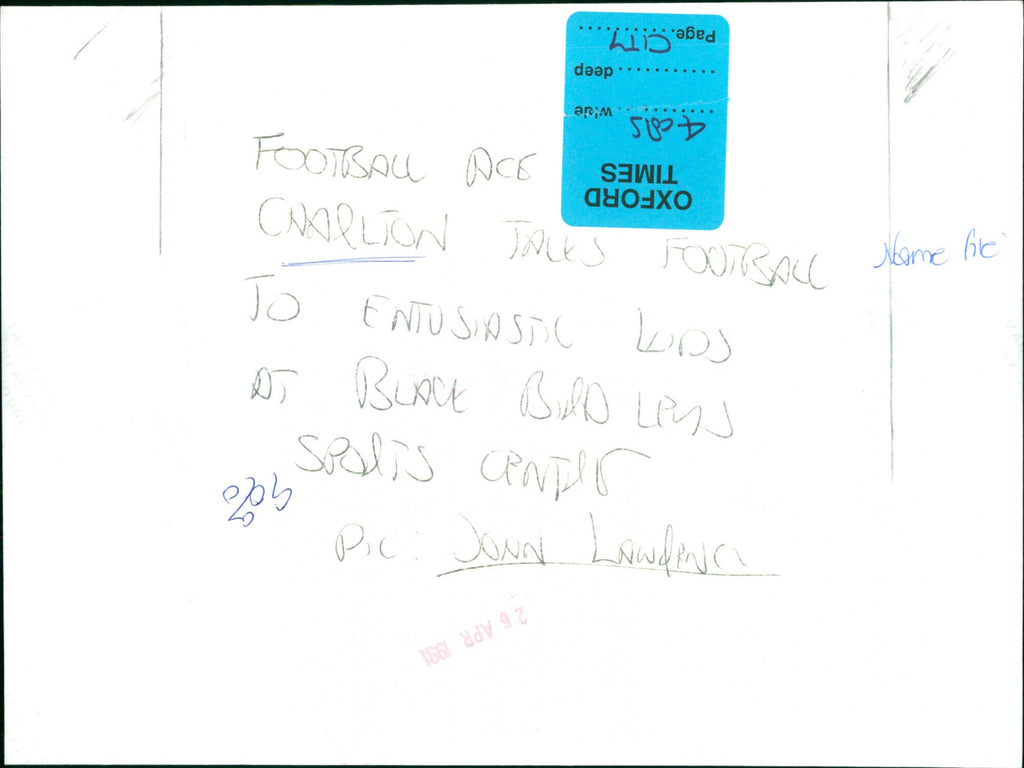 Page. CITY
deep
wide 4 cols
OXFORD
TIMES
FOOTBALL ACE
CHARLTON TALKS FOOTBALL
Name file
TO ENTUSIASTIC KIDS
AT BLACK BIRD LEYS
SPORTS CENTRE
PIC: JOHN LAWRENCE
26 APR 1991